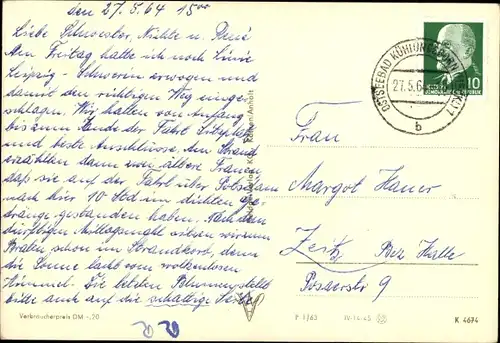 den 27.5.64 15⁰⁰
Liebe Schwester, Nichte u. René
Am Freitag hatte ich noch Linie
Leipzig - Schwerin erwogen und
damit den richtigen Weg einge
schlagen. Wir hatten von Anfang
bis zum Ende der Fahrt Sitzplatz
und beste Anschlüsse. Am Strand
erzählten dann zwei ältere Frauen
daß sie auf der Fahrt über Potsdam
nach hier 10 Std im dichten Ge-
dränge gestanden haben. Nach dem
dürftigen Mittagsmahl sitzen wir zum
Braten schon im Strandkorb, denn
die Sonne lacht vom wolkenlosen
Himmel. Die letzten
bitte auch auf die schattige Seite
Verbraucherpreis DM -,20
20 20
OSTSEEBAD KÜHLUNGSBORN
27.5.64
b
10
Frau
Margot
Zeitz Bez Halle
Posaerstr 9
P 1/63 IV-14-45
K 4674